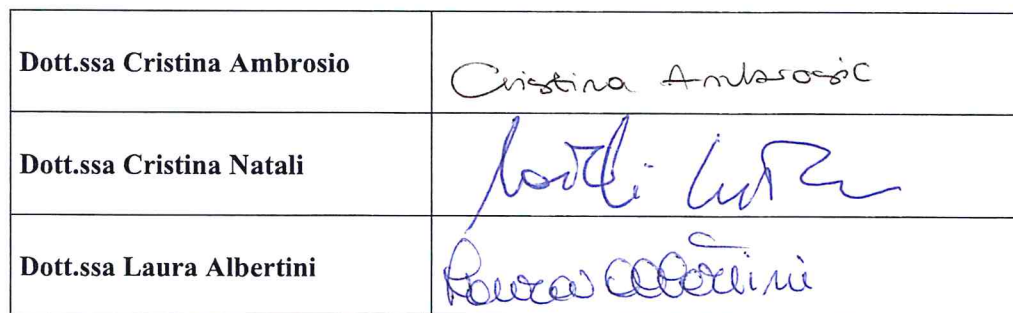 Dott.ssa Cristina Ambrosio
Cristina Ambrosio
Dott.ssa Cristina Natali
Natali
Dott.ssa Laura Albertini
Laura Albertini